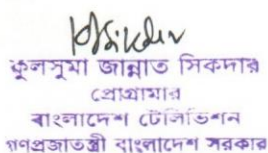 কুলসুমা জান্নাত সিকদার
প্রোগ্রামার
বাংলাদেশ টেলিভিশন
গণপ্রজাতন্ত্রী বাংলাদেশ সরকার